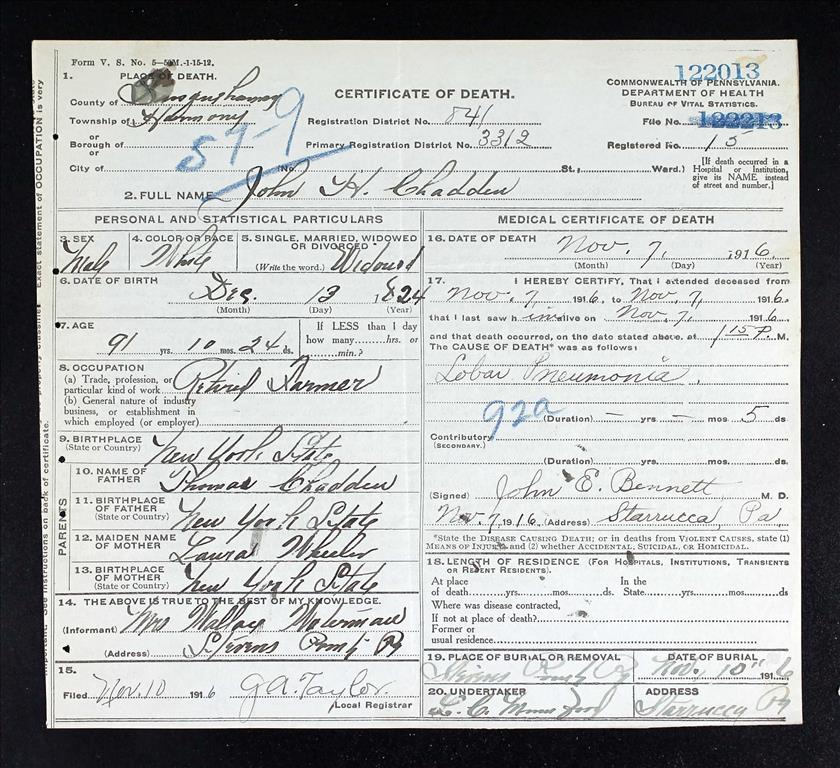 Form V. S. No. 5—50M.-1-15-12.
1. PLACE OF DEATH.
County of Susquehanna
Township of Harmony
or
Borough of
or
City of
59-9
CERTIFICATE OF DEATH.
Registration District No. 841
Primary Registration District No. 3312
(No. St., Ward.)
122013
COMMONWEALTH OF PENNSYLVANIA.
DEPARTMENT OF HEALTH
BUREAU OF VITAL STATISTICS.
File No. 122213
Registered No. 15
[If death occurred in a Hospital or Institution, give its NAME instead of street and number.]
2. FULL NAME John H. Chadden
PERSONAL AND STATISTICAL PARTICULARS
3. SEX
Male
4. COLOR OR RACE
White
5. SINGLE, MARRIED, WIDOWED
OR DIVORCED
(Write the word.) Widowed
6. DATE OF BIRTH
Dec. 13 1824
(Month) (Day) (Year)
7. AGE
91 yrs. 10 mos. 24 ds.
If LESS than 1 day
how many hrs. or
min.?
8. OCCUPATION
(a) Trade, profession, or
particular kind of work Retired Farmer
(b) General nature of industry
business, or establishment in
which employed (or employer)
9. BIRTHPLACE
(State or Country) New York State
PARENTS
10. NAME OF
FATHER Thomas Chadden
11. BIRTHPLACE
OF FATHER
(State or Country) New York State
12. MAIDEN NAME
OF MOTHER Laura Wheeler
13. BIRTHPLACE
OF MOTHER
(State or Country) New York State
14. THE ABOVE IS TRUE TO THE BEST OF MY KNOWLEDGE.
(Informant) Mrs Wallace Waterman
(Address) Stevens Point Pa
15.
Filed Nov. 10 1916 J A. Taylor.
Local Registrar
MEDICAL CERTIFICATE OF DEATH
16. DATE OF DEATH
Nov. 7, 1916.
(Month) (Day) (Year)
17. I HEREBY CERTIFY, That I attended deceased from
Nov. 7, 1916. to Nov. 7, 1916.
that I last saw h im alive on Nov. 7, 1916
and that death occurred, on the date stated above, at 1 15 P. M.
The CAUSE OF DEATH* was as follows:
Lobar Pneumonia,
92a
(Duration) — yrs — mos 5 ds
Contributory
(SECONDARY.)
(Duration) yrs. mos. ds.
(Signed) John E. Bennett, M. D.
Nov. 7, 1916 (Address) Starrucca, Pa,
*State the DISEASE CAUSING DEATH; or in deaths from VIOLENT CAUSES, state (1)
MEANS OF INJURY; and (2) whether ACCIDENTAL, SUICIDAL, OR HOMICIDAL.
18. LENGTH OF RESIDENCE (FOR HOSPITALS, INSTITUTIONS, TRANSIENTS
OR RECENT RESIDENTS).
At place
of death yrs. mos. ds.
In the
State yrs. mos. ds.
Where was disease contracted,
If not at place of death?
Former or
usual residence
19. PLACE OF BURIAL OR REMOVAL
Stevens Point Pa
DATE OF BURIAL
Nov. 10" 1916
20. UNDERTAKER
ADDRESS
Starrucca Pa